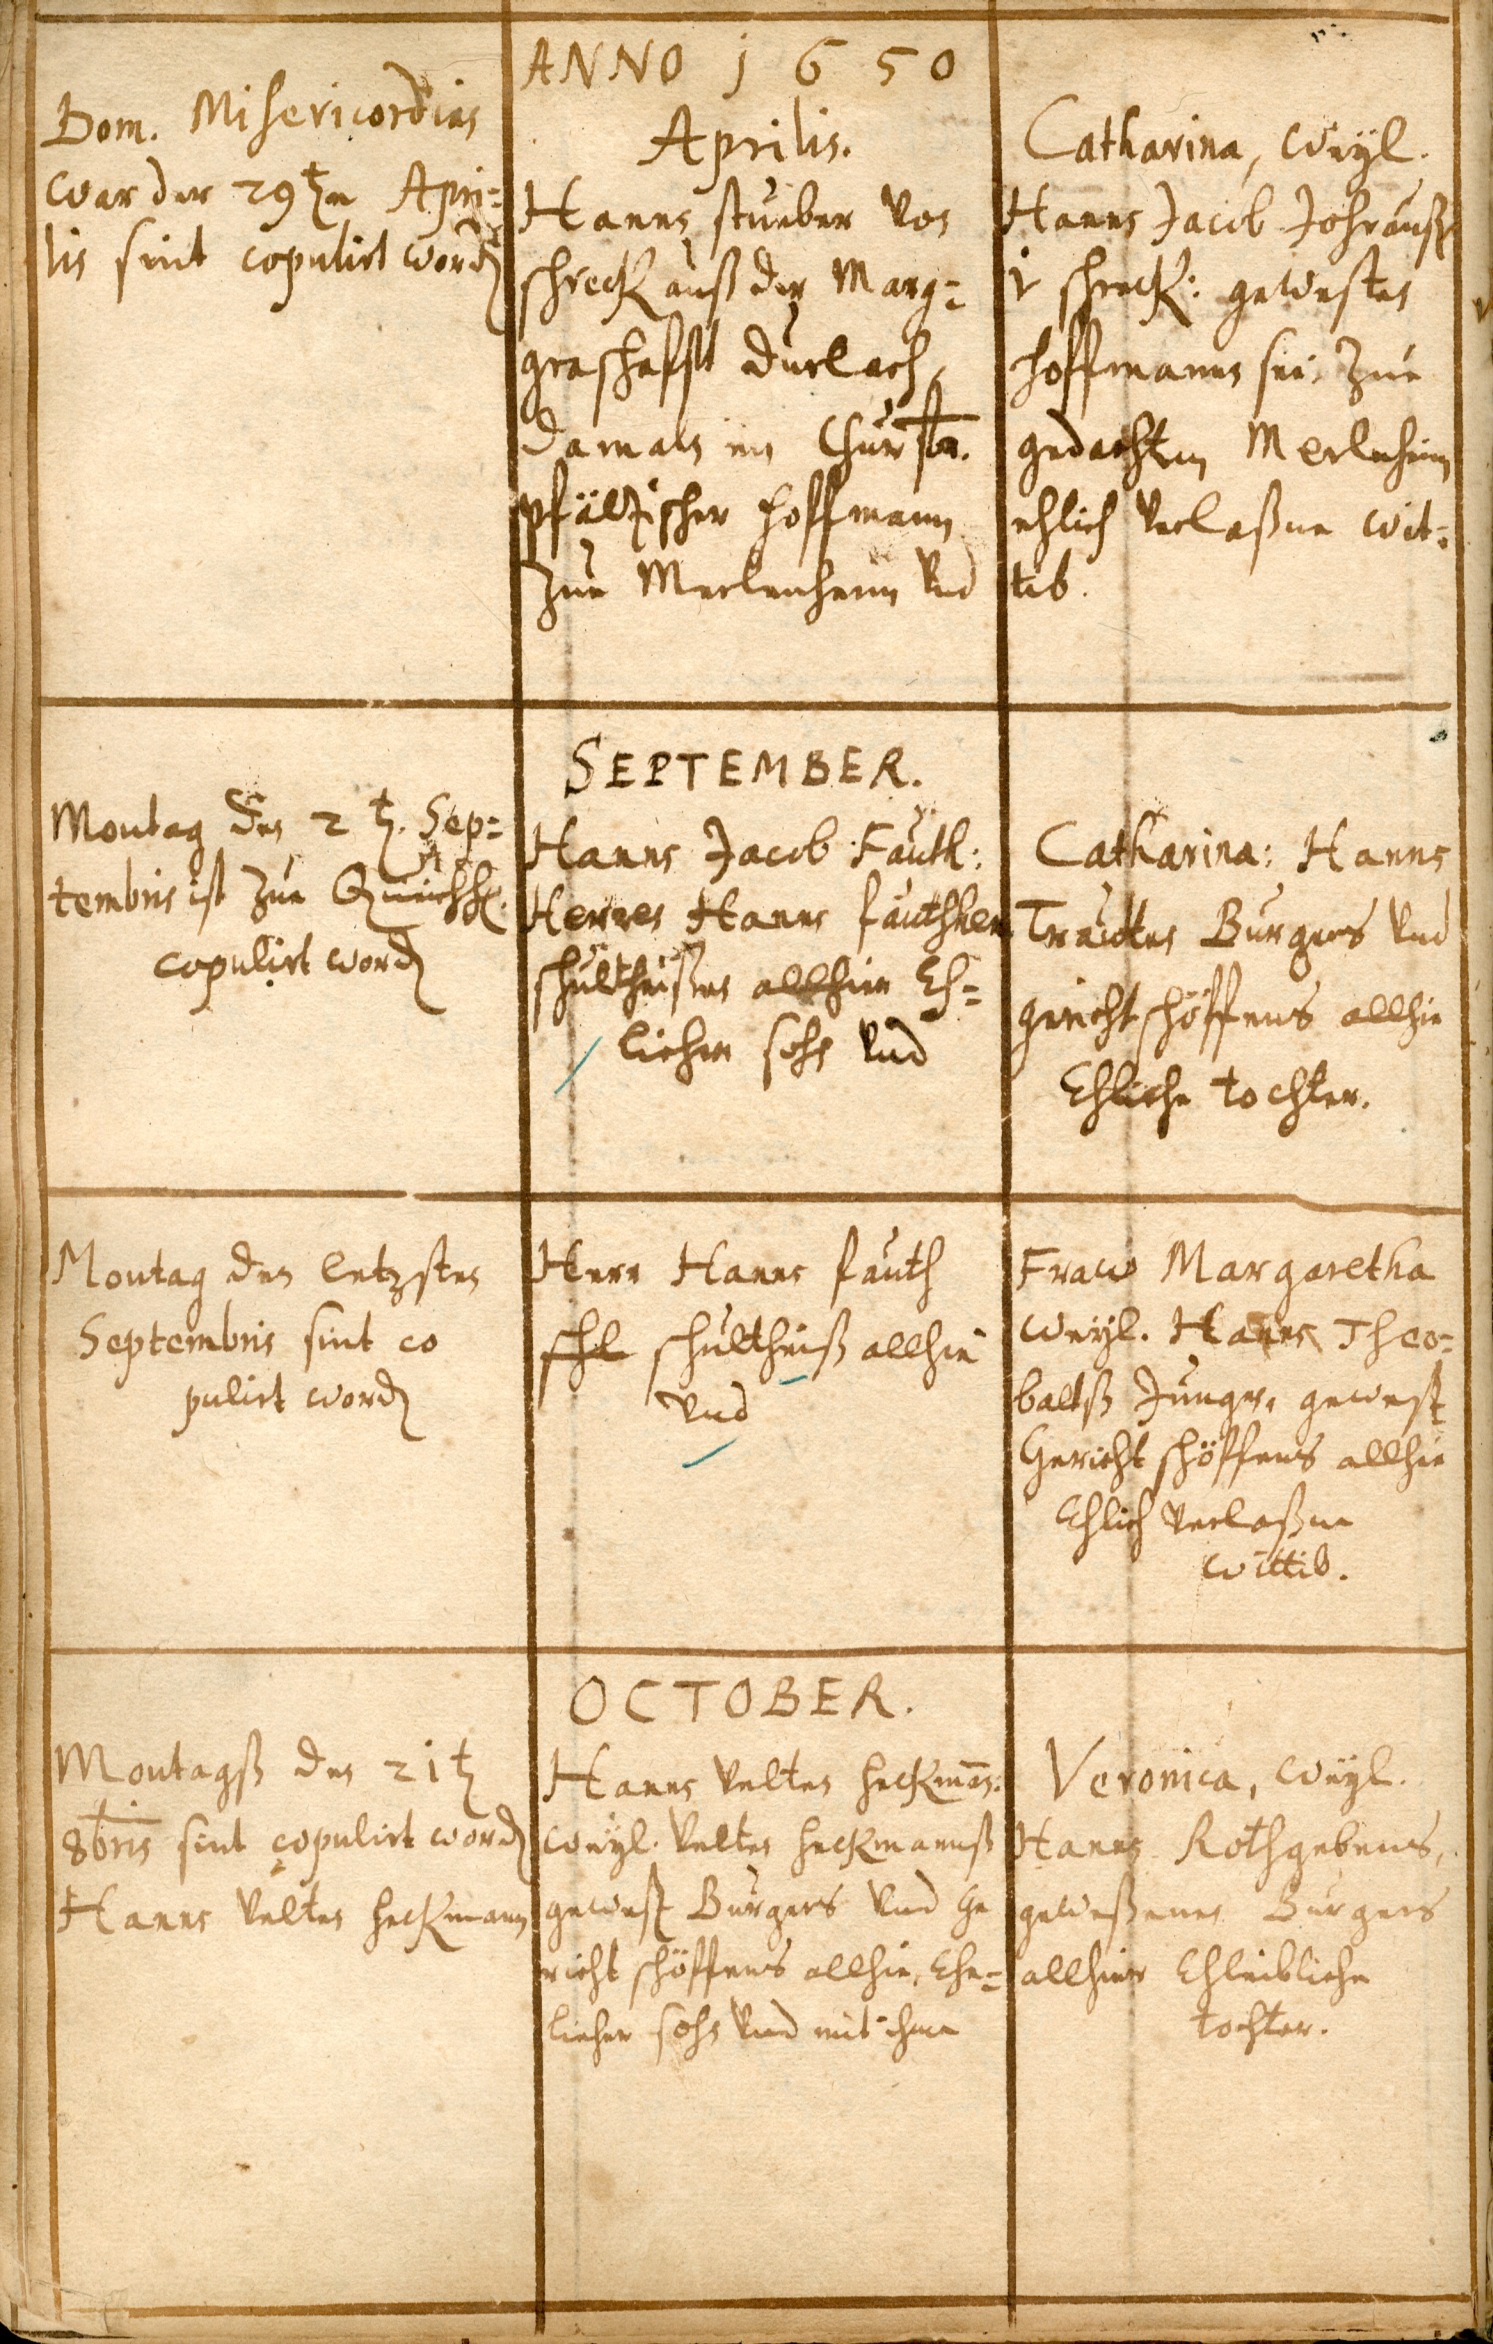 ANNO 1650
Aprilis.
Dom. Misericordias
war der 29ten Apri=
lis sint copulirt word
Hanns stueber von
schreck auß der Marg=
graschafft durlach,
damals ein Churftr.
pfältzischer hoffmann
zue Merlenheim und
Catharina, weyl.
Hanns Jacob
schreck: gewesten
hoffmanns sei. zue
gedachtem Merlenheim
ehlich verlaßne wit=
tib.
SEPTEMBER.
Montag den 2 t. Sep=
tembris ist zue
copulirt word
Hanns Jacob Fauth:
Herren Hanns fauthen
schultheißen allhier Eh=
licher sohn und
Catharina: Hanns
Trauttes Burgers und
gericht schöffens allhie
Ehliche tochter.
Montag den letzsten
Septembris sint co
pulirt word
Herr Hanns fauth
schl schultheiß allhie
und
Fraw Margaretha
weyl. Hanns Theo=
baltß Junger, gewest
Gericht schöffens allhie
Ehlich verlaßne
wittib.
OCTOBER.
Montagß den 21t
8bris sint copulirt word
Hanns velten heckmann
Hanns velten heckman:
weyl. velten heckmannß
gewest Burgers und Ge
richt schöffens allhie, Ehe=
licher sohn und mit ihme
Veronica, weyl.
Hanns Rothgebens,
geweßenen Burgers
allhier Ehleibliche
tochter.